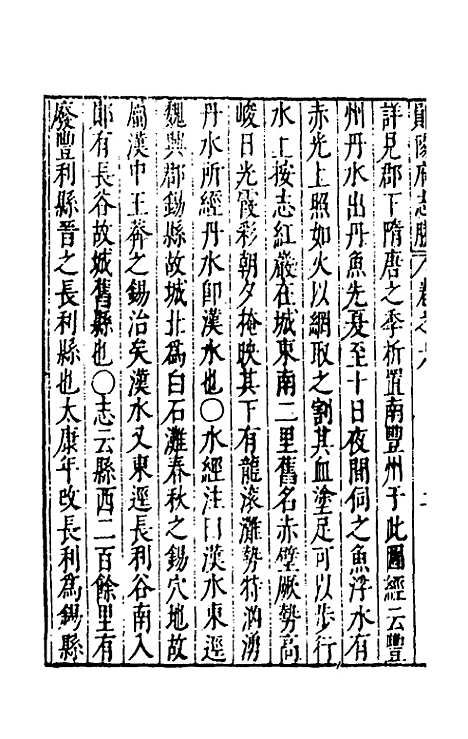 鄖陽府志勝 卷之六
詳見郡下隋唐之季析置南豐州于此圖經云豐
州丹水出丹魚先夏至十日夜間伺之魚浮水有
赤光上照如火以網取之割其血塗足可以步行
水上按志紅巖在城東南二里舊名赤壁厥勢高
峻日光霞彩朝夕掩映其下有龍滚灘勢特洶湧
丹水所經丹水即漢水也○水經注曰漢水東逕
魏興郡錫縣故城北爲白石灘春秋之錫穴地故
屬漢中王莽之錫治矣漢水又東逕長利谷南入
郎有長谷故城舊縣也○志云縣西二百餘里有
廢豐利縣晉之長利縣也太康年改長利爲錫縣